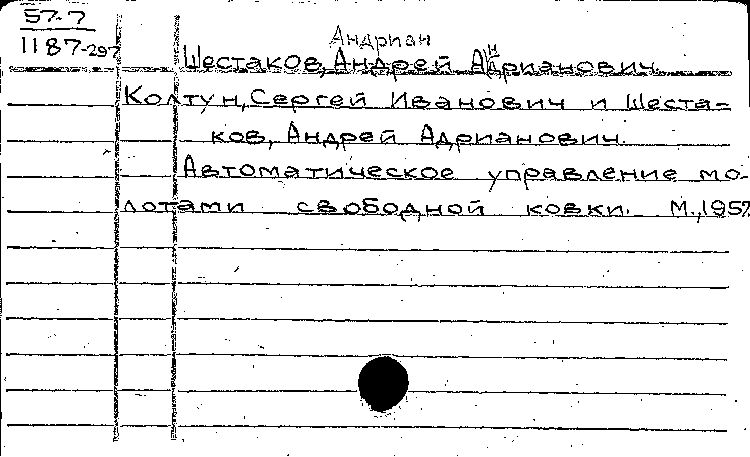 57-7
1187-297
Андриан
Шестаков, Андрей Андрианович.
Колтун, Сергей Иванович и Шеста-
ков, Андрей Адрианович.
Автоматическое управление мо-
лотами свободной ковки. М., 1957